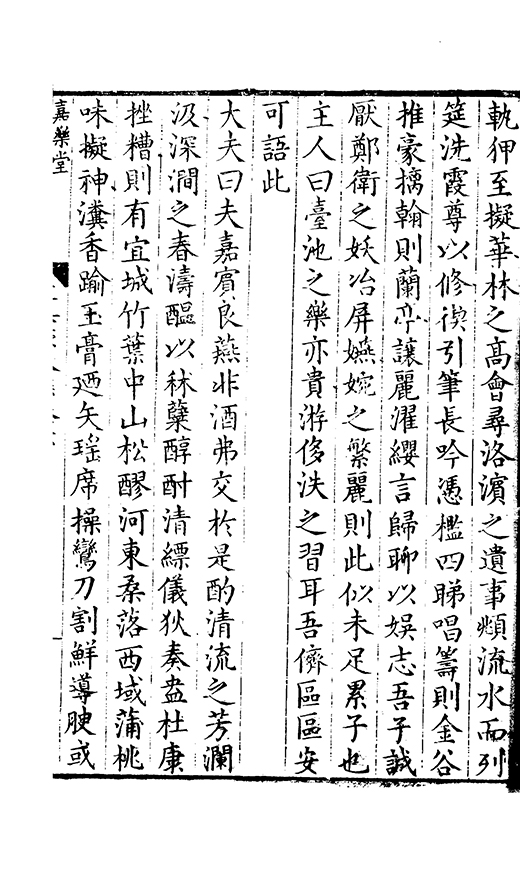 軌狎至擬華林之高會尋洛濱之遺事頫流水而列
筵洗霞尊以修禊引筆長吟憑檻四睇唱籌則金谷
推豪摛翰則蘭亭讓麗濯纓言歸聊以娛志吾子誠
厭鄭衛之妖冶屏嬿婉之繁麗則此似未足累子也
主人曰臺池之樂亦貴游侈泆之習耳吾儕區區安
可語此
大夫曰夫嘉賓良燕非酒弗交於是酌清流之芳瀾
汲深澗之春濤醞以秫糵醇酎清縹儀狄奏盎杜康
挫糟則有宜城竹葉中山松醪河東桑落西域蒲桃
味擬神瀵香踰玉膏廼矢瑤席操鸞刀割鮮導腴或
嘉樂堂